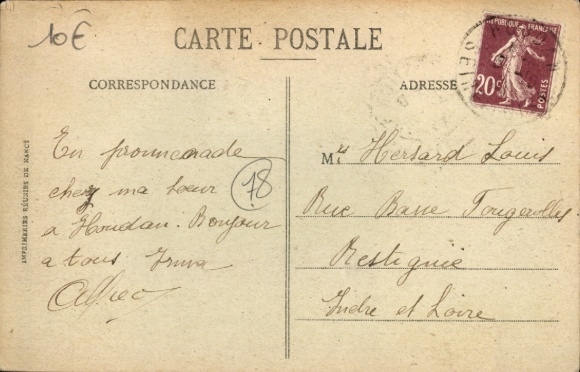 10€
CARTE POSTALE
CORRESPONDANCE
ADRESSE
RÉPUBLIQUE FRANÇAISE
20c
POSTES
IMPRIMERIES RÉUNIES DE NANCY
En promenade
chez ma sœur
a Houdan. Bonjour
a tous
78
M Hersard Louis
Rue Basse Fougerolles
Restigné
Indre et Loire